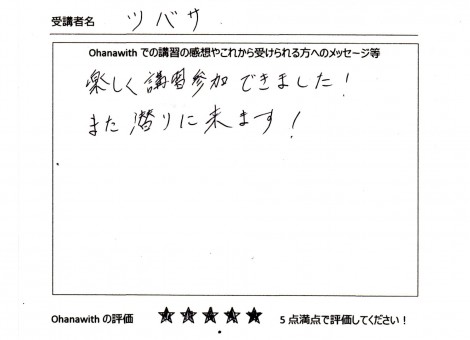 受講者名 ツバサ
Ohanawith での講習の感想やこれから受けられる方へのメッセージ等
楽しく講習参加できました!
また潜りに来ます!
Ohanawith の評価 ★★★★★ 5点満点で評価してください!